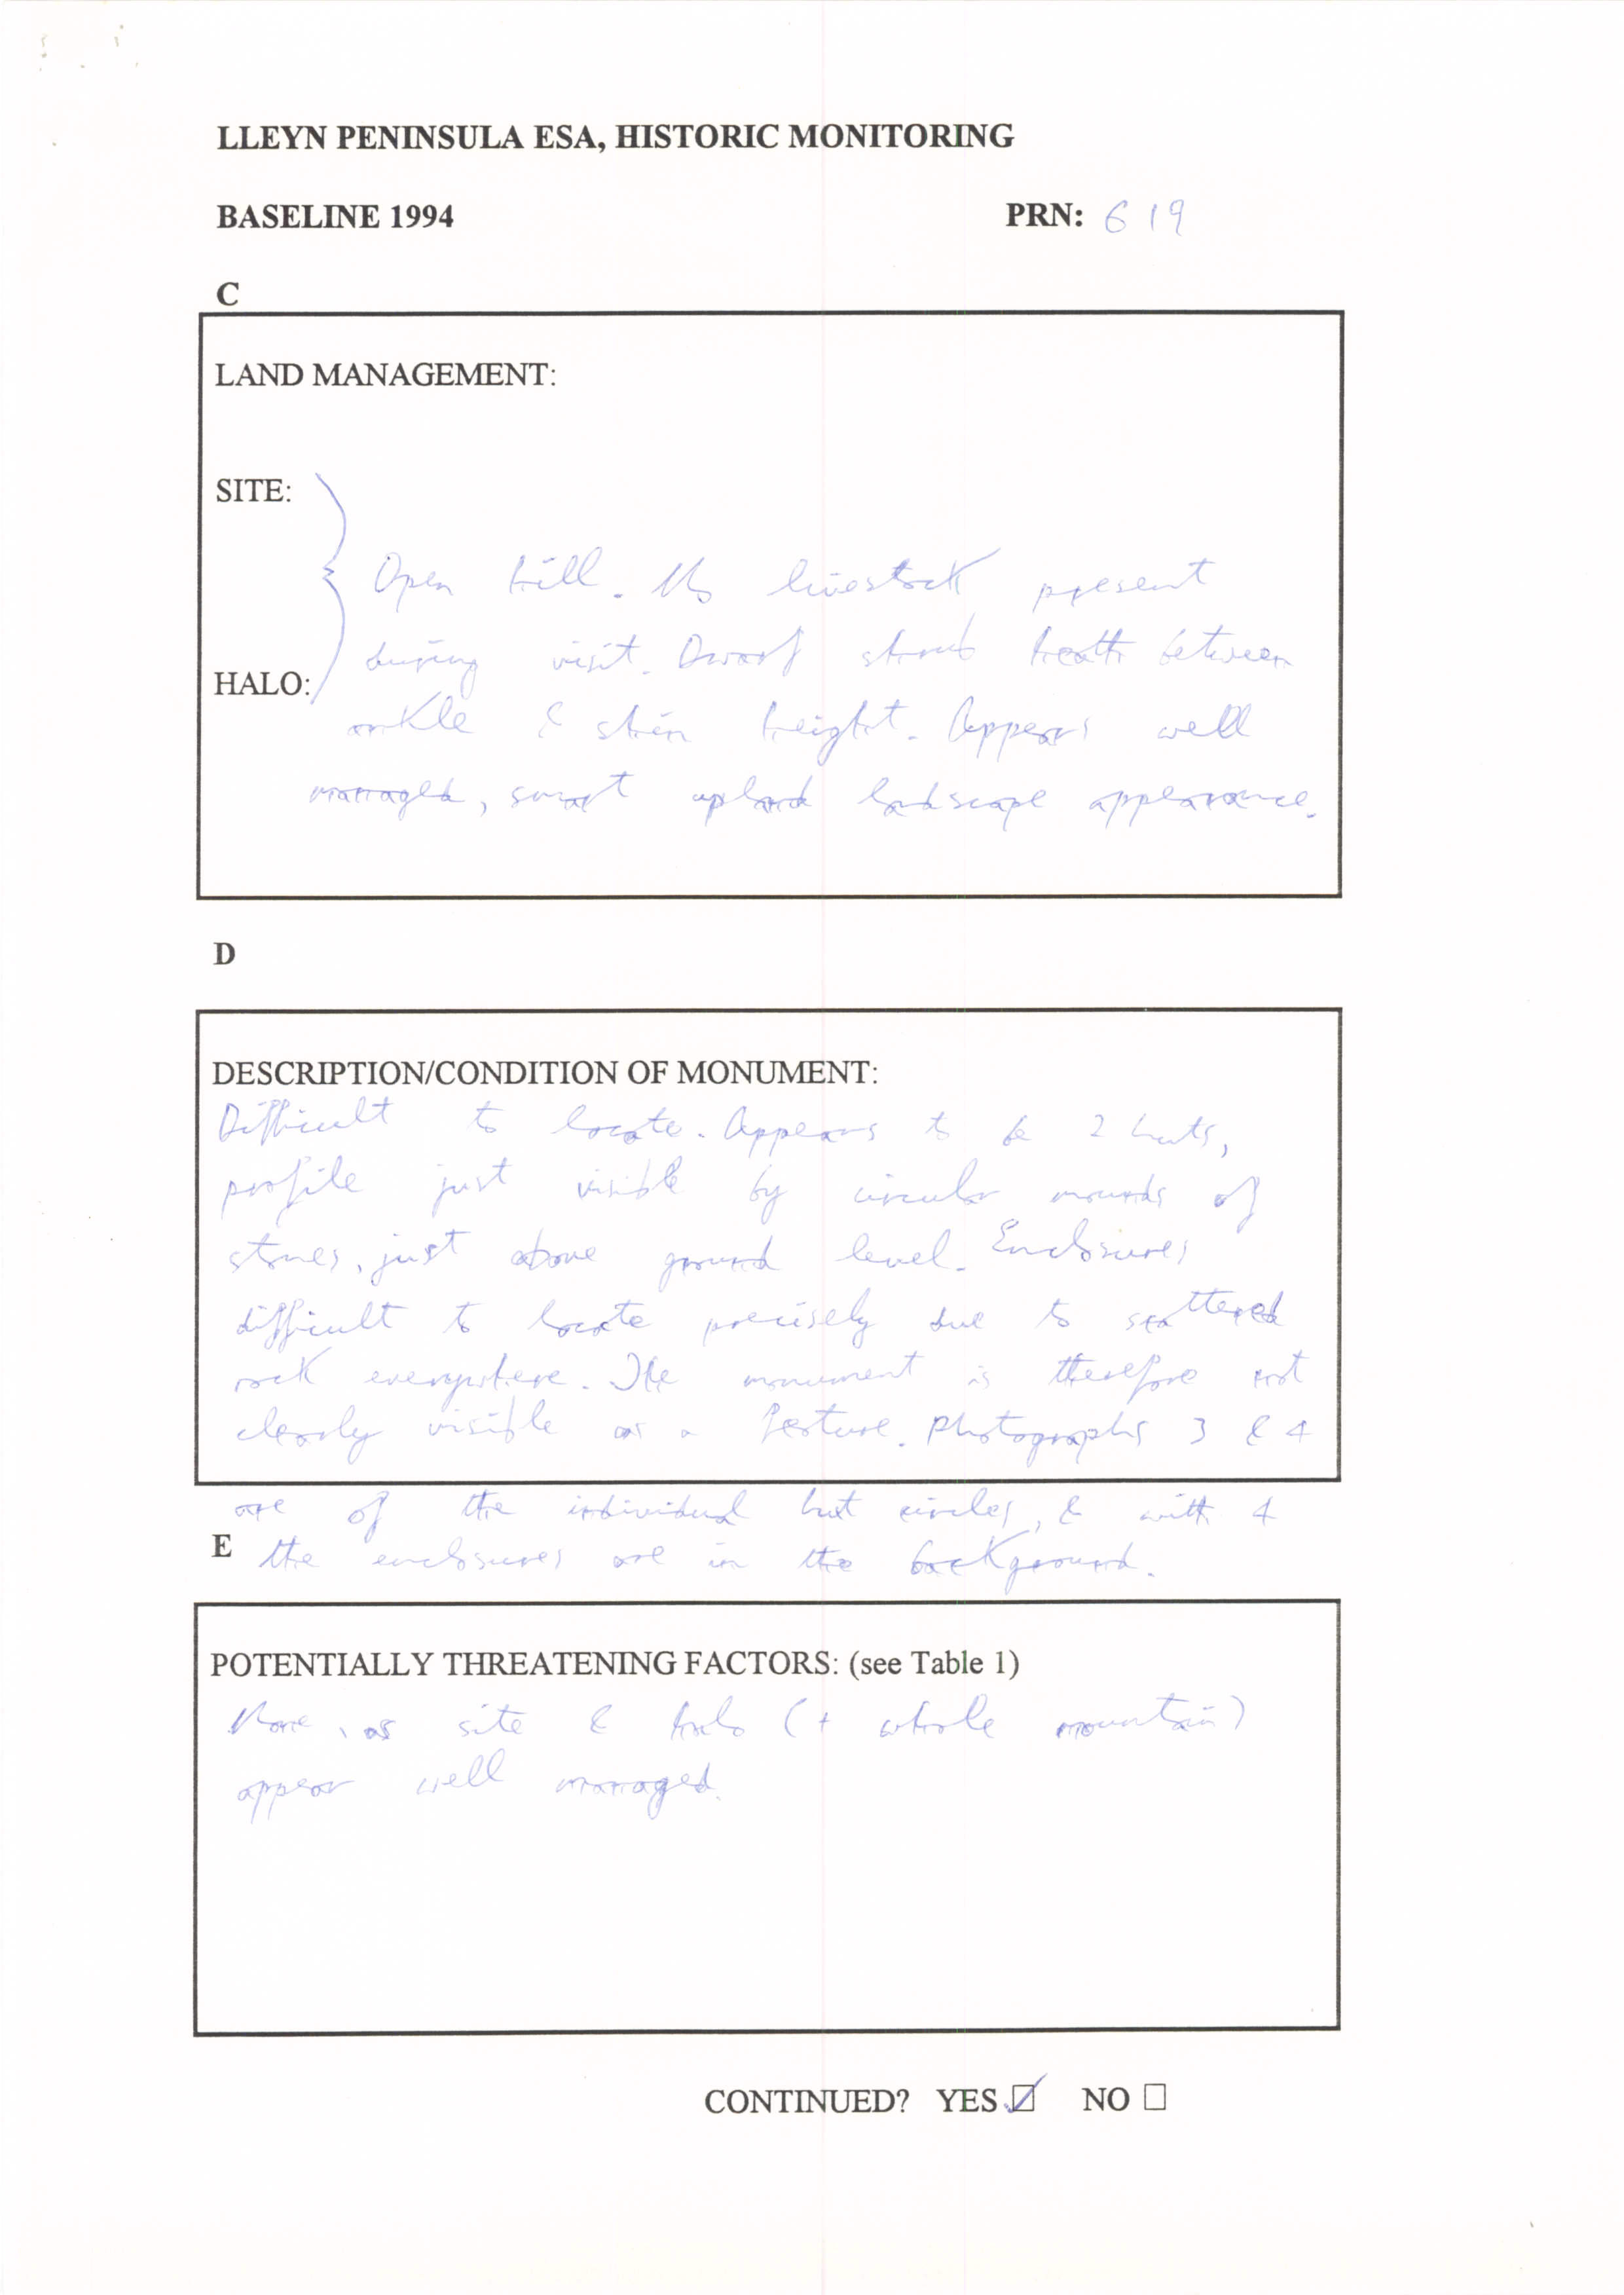 LLEYN PENINSULA ESA, HISTORIC MONITORING
BASELINE 1994 PRN: 619
C
LAND MANAGEMENT:
SITE:
Open hill. No livestock present
during visit. Dwarf shrub heath between
HALO:
ankle & shin height. Appears well
managed, smart upland landscape appearance.
D
DESCRIPTION/CONDITION OF MONUMENT:
Difficult to locate. Appears to be 2 huts,
profile just visible by circular mounds of
stones, just above ground level. Enclosures
difficult to locate precisely due to scattered
rock everywhere. The monument is therefore not
clearly visible as a feature. Photographs 3 & 4
are of the individual hut circles, & with 4
E the enclosures are in the background.
POTENTIALLY THREATENING FACTORS: (see Table 1)
None, as site & halo (+ whole mountain)
appear well managed.
CONTINUED? YES ☑ NO ☐